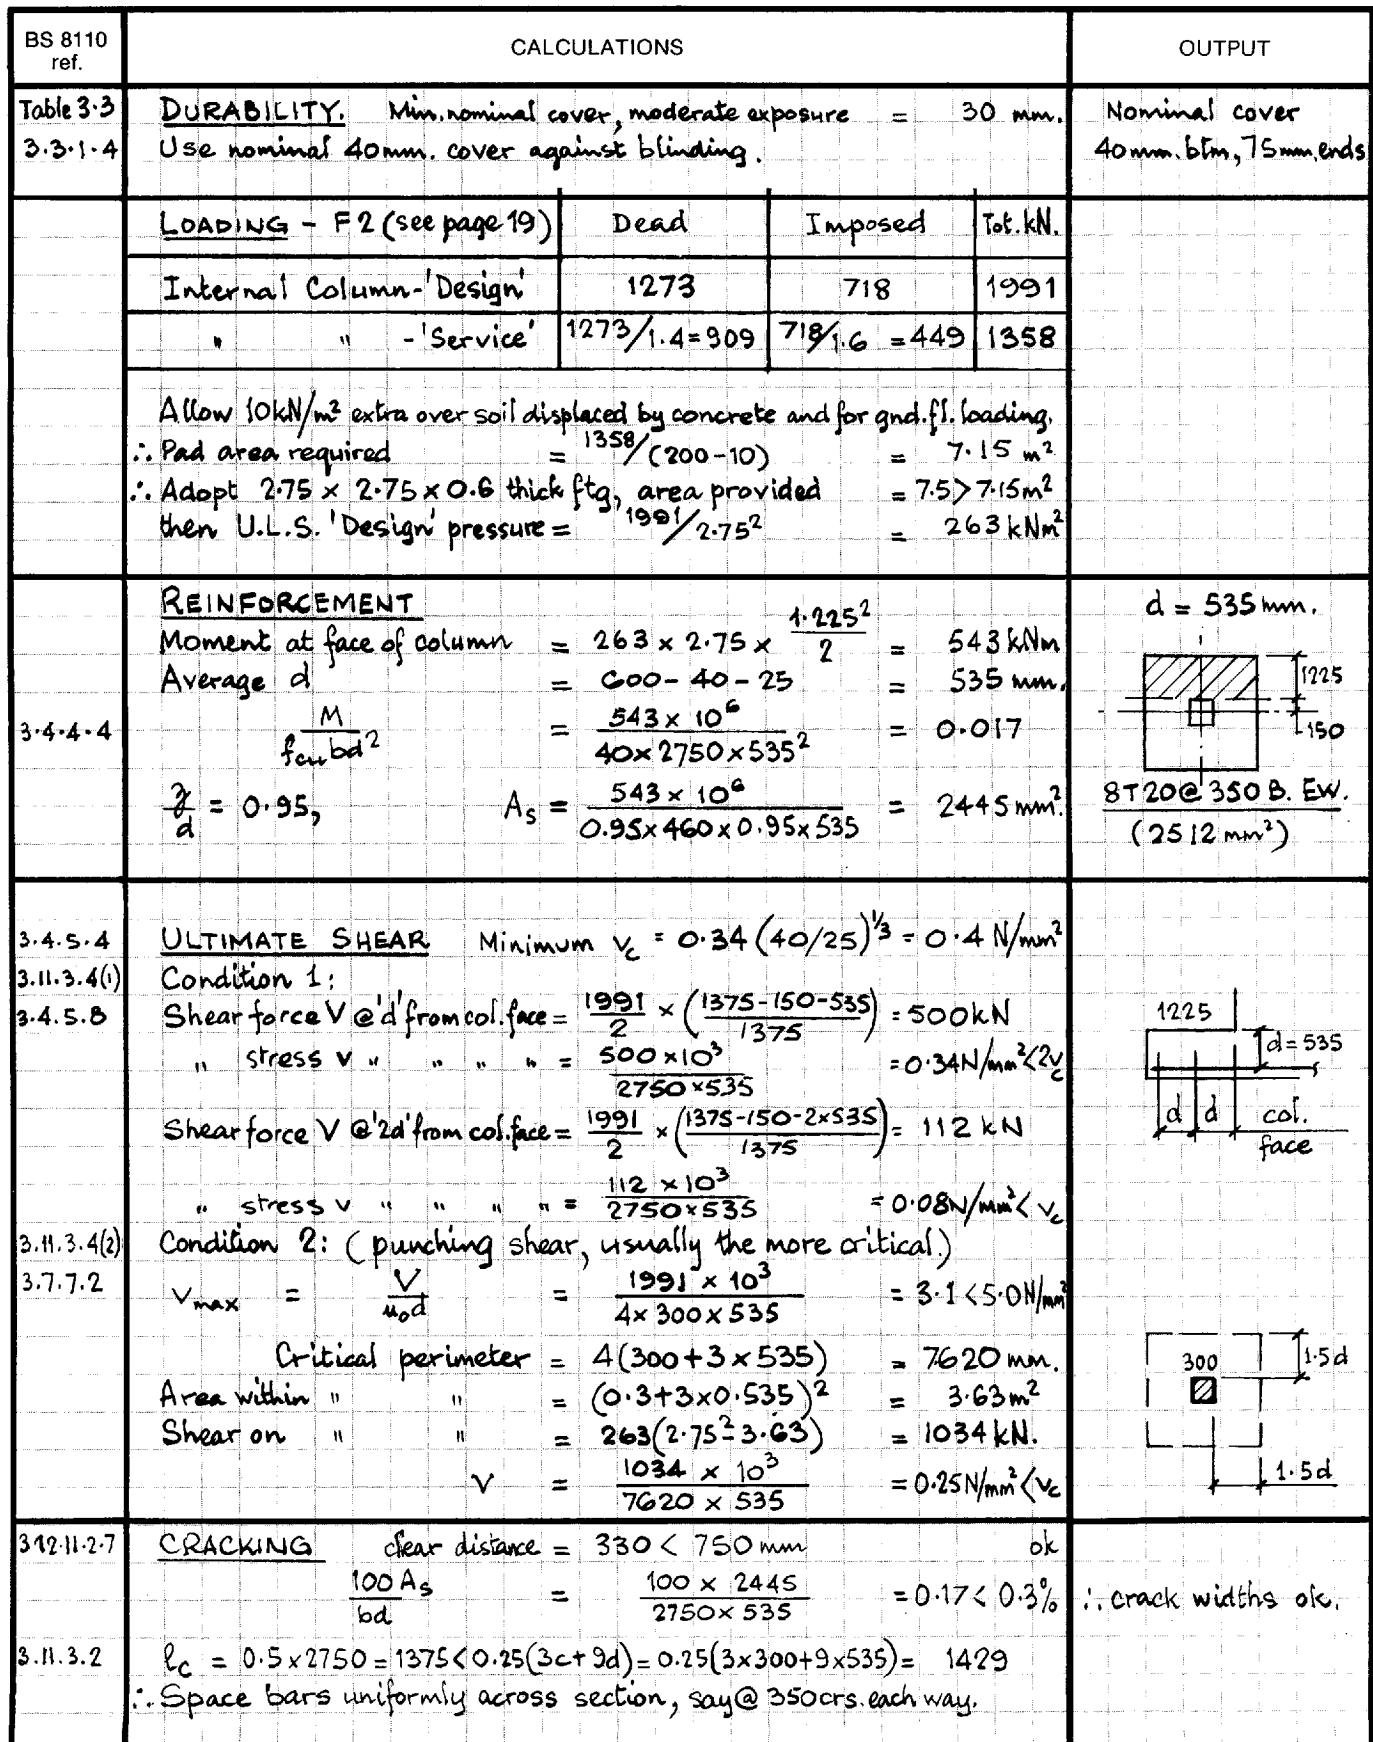 BS 8110 ref. CALCULATIONS OUTPUT
Table 3.3 DURABILITY. Min. nominal cover, moderate exposure = 30 mm. Nominal cover
3.3.1.4 Use nominal 40mm. cover against blinding. 40mm. btm, 75mm. ends
LOADING - F2 (see page 19) Dead Imposed Tot. kN.
Internal Column - 'Design' 1273 718 1991
" " - 'Service' 1273/1.4 = 909 718/1.6 = 449 1358
Allow 10kN/m² extra over soil displaced by concrete and for gnd. fl. loading.
∴ Pad area required = 1358/(200-10) = 7.15 m²
∴ Adopt 2.75 × 2.75 × 0.6 thick ftg, area provided = 7.5 > 7.15m²
then U.L.S. 'Design' pressure = 1991/2.75² = 263 kNm²
REINFORCEMENT d = 535 mm.
Moment at face of column = 263 × 2.75 × 1.225²/2 = 543 kNm
Average d = 600 - 40 - 25 = 535 mm. 1225
3.4.4.4 M/fcu bd² = 543 × 10⁶/40 × 2750 × 535² = 0.017 150
z/d = 0.95, As = 543 × 10⁶/0.95 × 460 × 0.95 × 535 = 2445 mm². 8T20@350 B. EW.
(2512 mm²)
3.4.5.4 ULTIMATE SHEAR Minimum vc = 0.34 (40/25)^⅓ = 0.4 N/mm²
3.11.3.4(1) Condition 1:
3.4.5.8 Shear force V @ 'd' from col. face = 1991/2 × (1375-150-535/1375) = 500kN 1225
" stress v " " " " = 500 × 10³/2750 × 535 = 0.34N/mm² < 2vc d = 535
Shear force V @ '2d' from col. face = 1991/2 × (1375-150-2×535/1375) = 112 kN d d col. face
" stress v " " " " = 112 × 10³/2750 × 535 = 0.08N/mm² < vc
3.11.3.4(2) Condition 2: (punching shear, usually the more critical)
3.7.7.2 vmax = V/u₀d = 1991 × 10³/4 × 300 × 535 = 3.1 < 5.0N/mm²
Critical perimeter = 4(300 + 3 × 535) = 7620 mm. 300 1.5d
Area within " " = (0.3 + 3×0.535)² = 3.63m²
Shear on " " = 263(2.75² - 3.63) = 1034 kN.
V = 1034 × 10³/7620 × 535 = 0.25N/mm² < vc 1.5d
3.12.11.2.7 CRACKING clear distance = 330 < 750 mm ok
100 As/bd = 100 × 2445/2750 × 535 = 0.17 < 0.3% ∴ crack widths ok.
3.11.3.2 lc = 0.5 × 2750 = 1375 < 0.25(3c + 9d) = 0.25(3×300 + 9×535) = 1429
∴ Space bars uniformly across section, say @ 350 crs. each way.